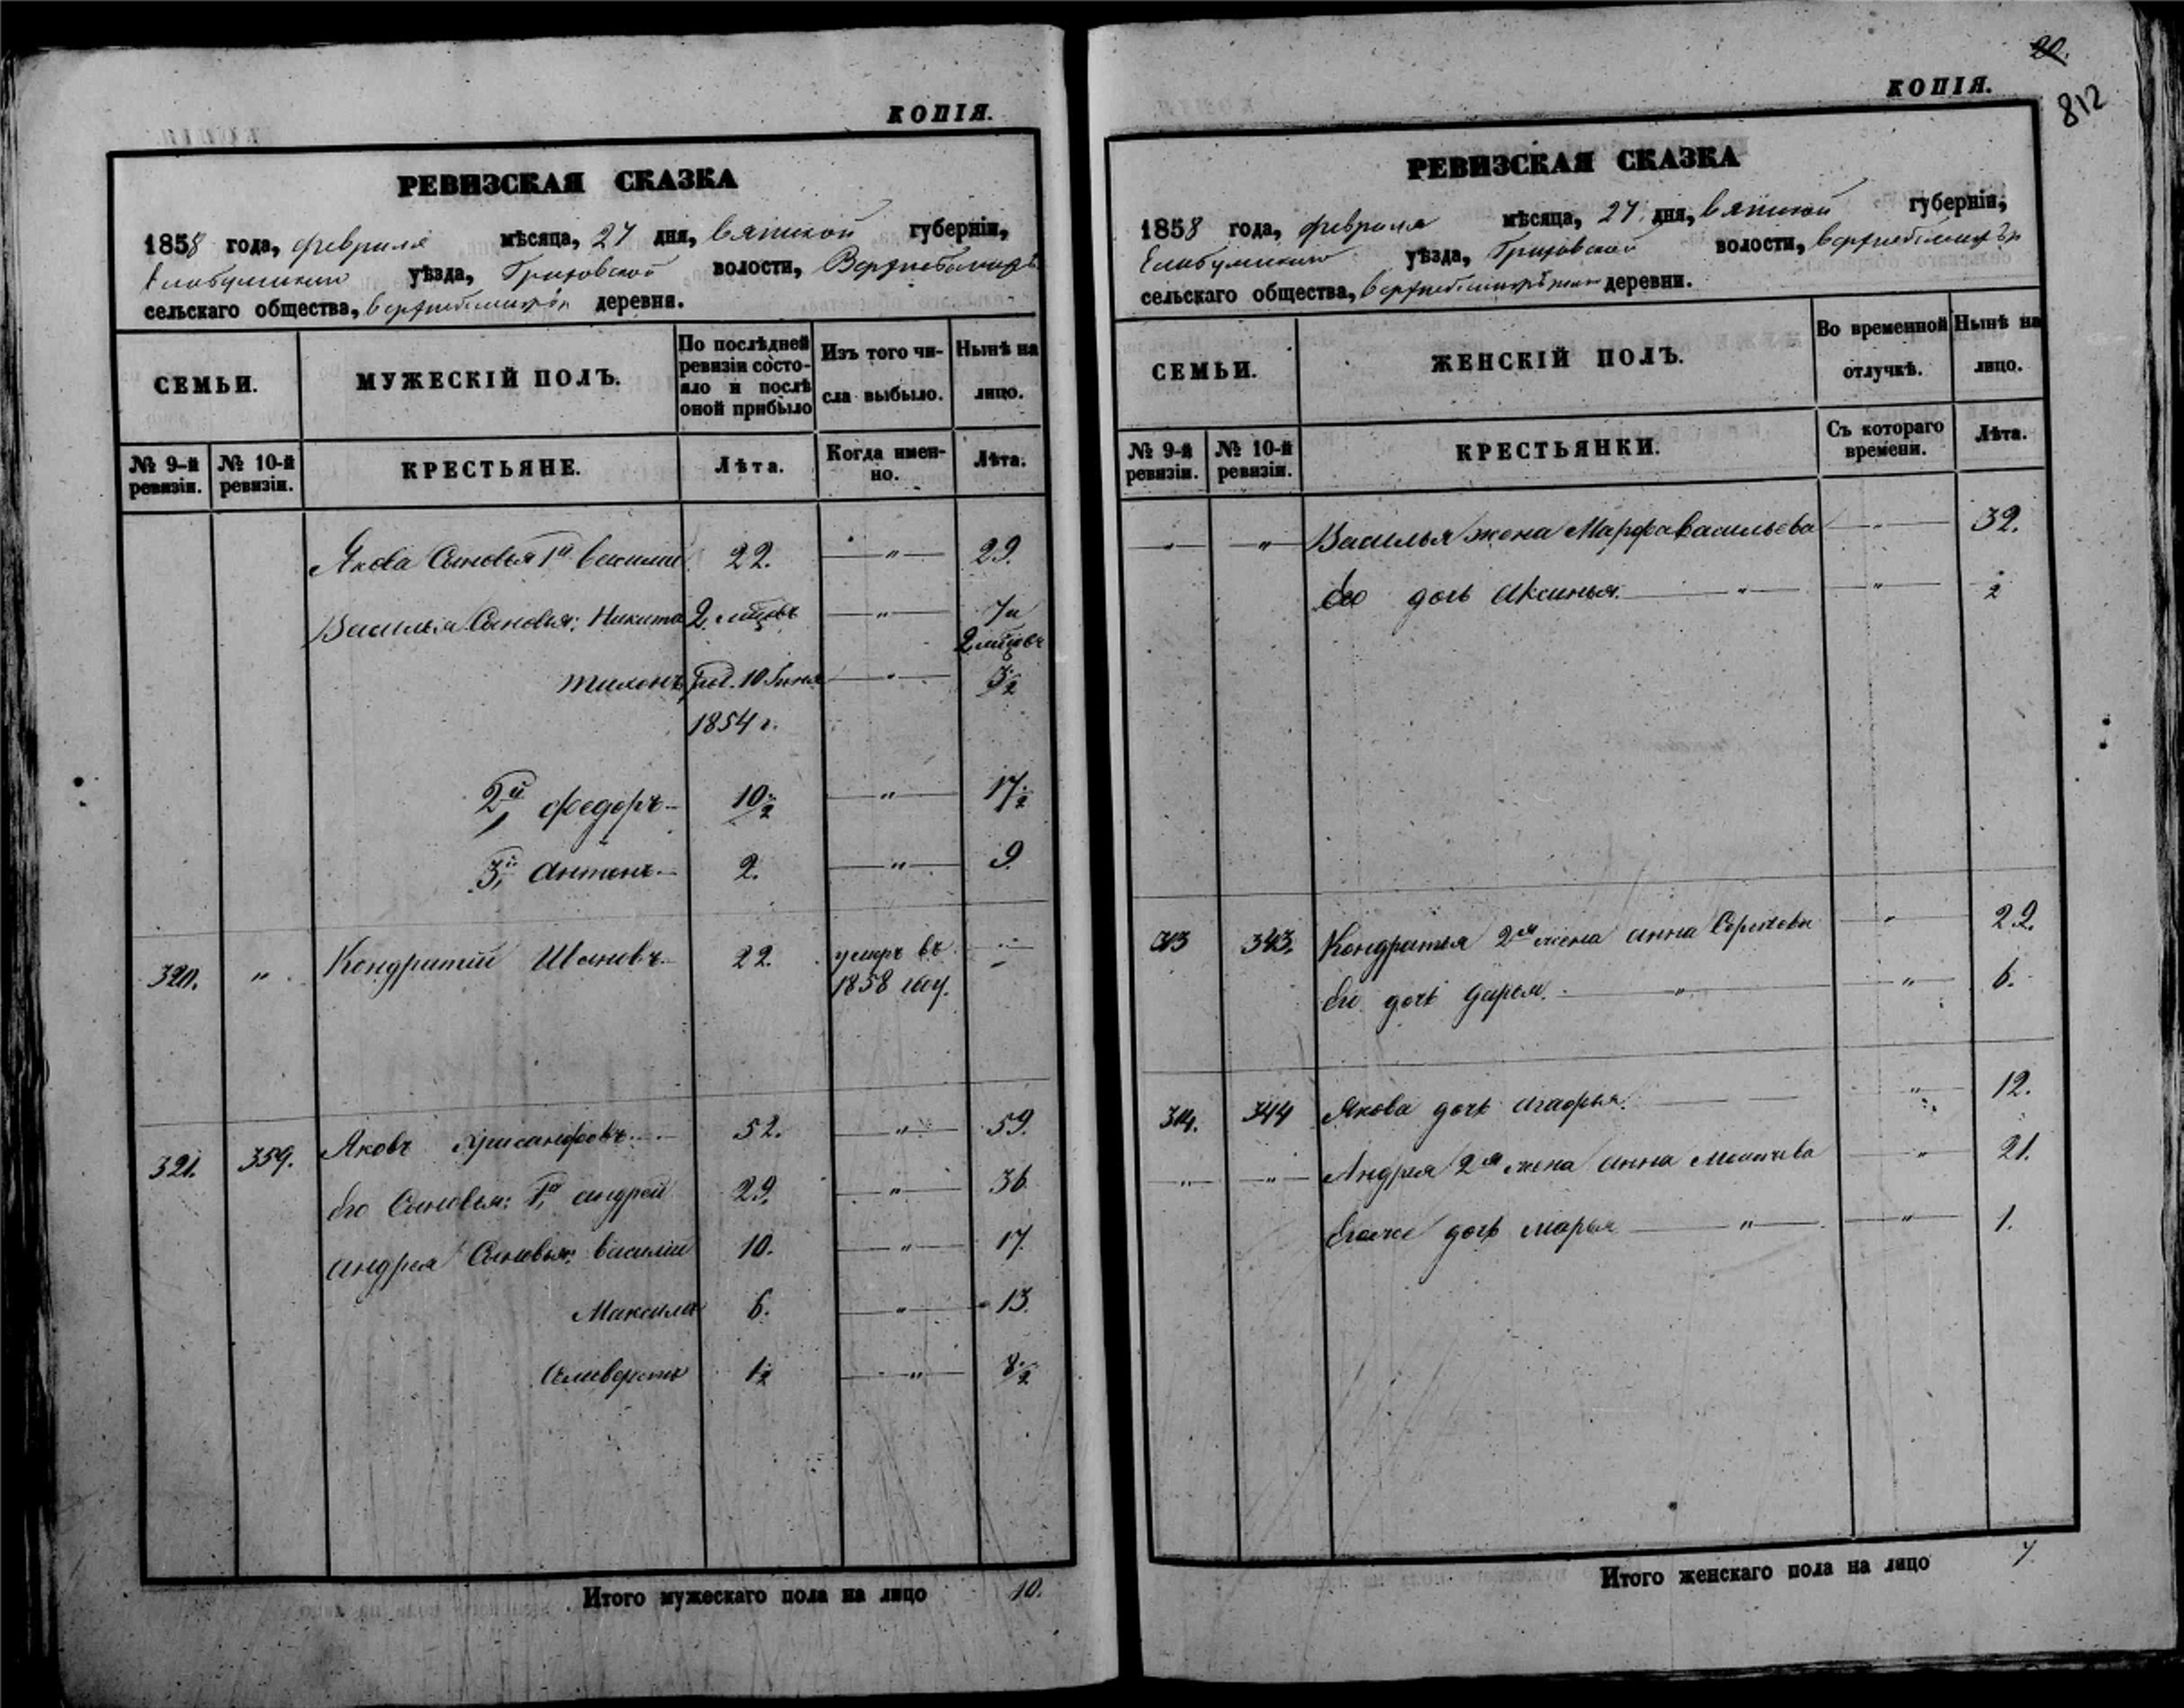 КОПІЯ.
РЕВИЗСКАЯ СКАЗКА
1858 года, февраля мѣсяца, 27 дня, Вятской губерніи,
Елабужскаго уѣзда, волости,
сельскаго общества, деревня.
СЕМЬИ.
МУЖЕСКІЙ ПОЛЪ.
По послѣдней
ревизіи состо-
яло и послѣ
оной прибыло
Изъ того чи-
сла выбыло.
Нынѣ на
лицо.
№ 9-й
ревизіи.
№ 10-й
ревизіи.
КРЕСТЬЯНЕ.
Лѣта.
Когда имен-
но.
Лѣта.
Якова Сыновья 1й Василій 22. — „ — 29.
Василья Сыновья: Никита 2 мѣсяцъ — „ — 7 и
2 мѣсяцъ
Тихонъ род. 10 Іюня — „ — 3½
1854 г.
2й Федоръ 10½ — „ — 17½
3й Антонъ 2. — „ — 9
320. „ Кондратій Ивановъ 22. умеръ въ — „ —
1858 году.
321. 359. Яковъ Хрисанфовъ 52. — „ — 59.
Его Сыновья: 1й Андрей 29. — „ — 36
Андрея Сыновья: Василій 10. — „ — 17.
Максимъ 6. — „ — 13.
Селиверстъ 1½ — „ — 8½
Итого мужескаго пола на лицо 10.
20.
812
КОПІЯ.
РЕВИЗСКАЯ СКАЗКА
1858 года, февраля мѣсяца, 27 дня, Вятской губерніи,
Елабужскаго уѣзда, волости,
сельскаго общества, деревни.
СЕМЬИ.
ЖЕНСКІЙ ПОЛЪ.
Во временной
отлучкѣ.
Нынѣ на
лицо.
№ 9-й
ревизіи.
№ 10-й
ревизіи.
КРЕСТЬЯНКИ.
Съ котораго
времени.
Лѣта.
— „ — „ Василья жена Марфа Васильева — „ — 32.
Его дочь Аксинья. — „ — „ — ½
313 343. Кондратья 2я жена Анна Сергѣева — „ — 29.
Его дочь Дарья. — „ — „ — 6.
314. 344 Якова дочь Агафья. — „ 12.
— „ — „ Андрея 2я жена Анна — „ — 21.
Егоже дочь Марья — „ — „ — 1.
Итого женскаго пола на лицо 7.